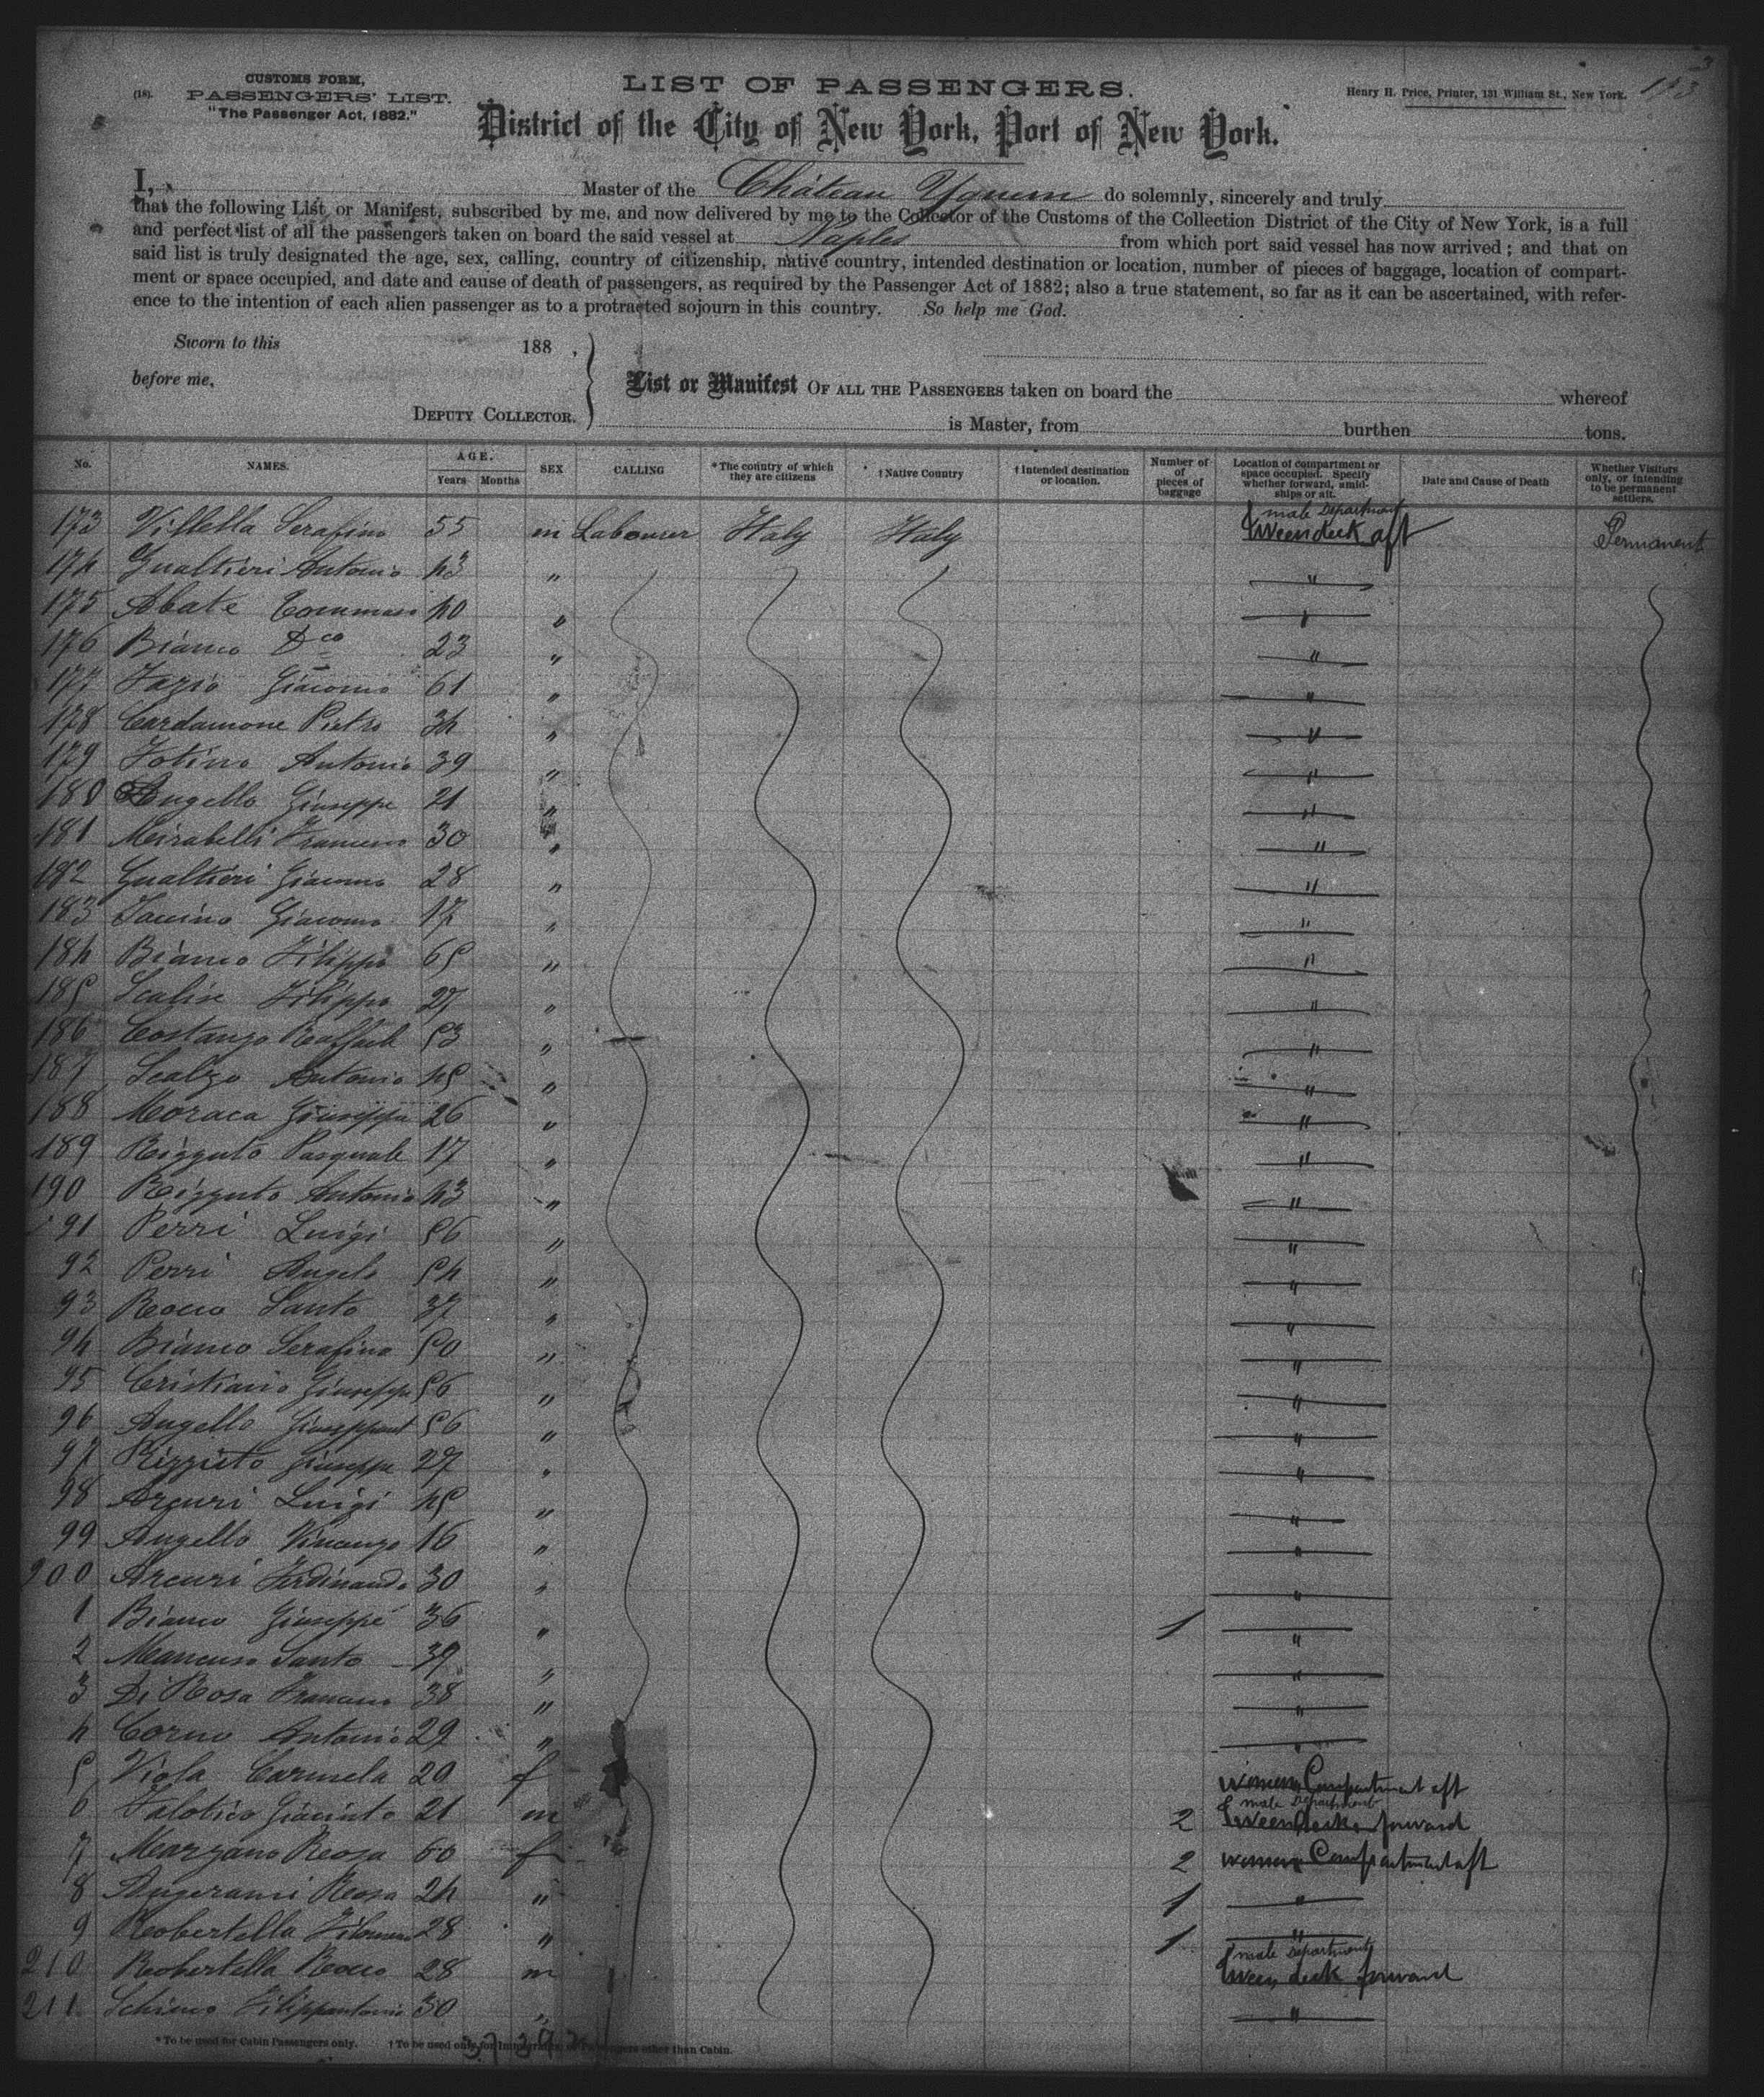 CUSTOMS FORM,
(18). PASSENGERS' LIST.
"The Passenger Act, 1882."
LIST OF PASSENGERS.
Henry H. Price, Printer, 131 William St., New York.
District of the City of New York, Port of New York.
I, Master of the Château Yquem do solemnly, sincerely and truly
that the following List or Manifest, subscribed by me, and now delivered by me to the Collector of the Customs of the Collection District of the City of New York, is a full
and perfect list of all the passengers taken on board the said vessel at Naples from which port said vessel has now arrived; and that on
said list is truly designated the age, sex, calling, country of citizenship, native country, intended destination or location, number of pieces of baggage, location of compart-
ment or space occupied, and date and cause of death of passengers, as required by the Passenger Act of 1882; also a true statement, so far as it can be ascertained, with refer-
ence to the intention of each alien passenger as to a protracted sojourn in this country. So help me God.
Sworn to this 188 ,
before me,
DEPUTY COLLECTOR.
List or Manifest OF ALL THE PASSENGERS taken on board the whereof
is Master, from burthen tons.
No. NAMES. AGE. Years Months SEX CALLING *The country of which they are citizens †Native Country †Intended destination or location. Number of of pieces of baggage Location of compartment or space occupied. Specify whether forward, amid-ships or aft. Date and Cause of Death Whether Visitors only, or intending to be permanent settlers.
173 Serafino 55 m Labourer Italy Italy male Department tweendeck aft Permanent
174 Gualtieri Antonio 43 "  "
175 Abate Tommaso 40 " "
176 Bianco Dco 23 " "
177 Fazio Giacomo 61 " "
178 Cardamone Pietro 34 " "
179 Fotino Antonio 39 " "
180 Angello Giuseppe 21 " "
181 Mirabelli Francesco 30 " "
182 Gualtieri Giacomo 28 " "
183 Giacomo 17 " "
184 Bianco Filippo 65 " "
185 Scalise Filippo 27 " "
186 Costanzo Raffaele 53 " "
187 Scalzo Antonio 45 " "
188 Moraca Giuseppe 26 " "
189 Rizzuto Pasquale 17 " "
190 Rizzuto Antonio 43 " "
91 Perri Luigi 56 " "
92 Perri Angelo 54 " "
93 Rocco Santo 37 " "
94 Bianco Serafino 50 " "
95 Cristiano Giuseppe 56 " "
96 Angello 56 " "
97 Rizzuto Giuseppe 27 " "
98 Arcuri Luigi 45 " "
99 Angello Vincenzo 16 " "
200 Arcuri Ferdinando 30 " "
1 Bianco Giuseppe 36 " 1 "
2 Mancuso Santo 39 " "
3 Di Rosa Francesco 38 " "
4 Antonio 29 " "
5 Viola Carmela 20 f women Compartment aft
6 Giacinto 21 m 2 male Department tweendeck forward
7 Marzano Rosa 60 f 2 women Compartment aft
8 Angerami Rosa 24 " 1 "
9 Robertella Filomena 28 " 1 "
210 Robertella Rocco 28 m male Department tween deck forward
211 Schirco Filippantonio 30 " "
*To be used for Cabin Passengers only. †To be used only for Immigrants, or Passengers other than Cabin.